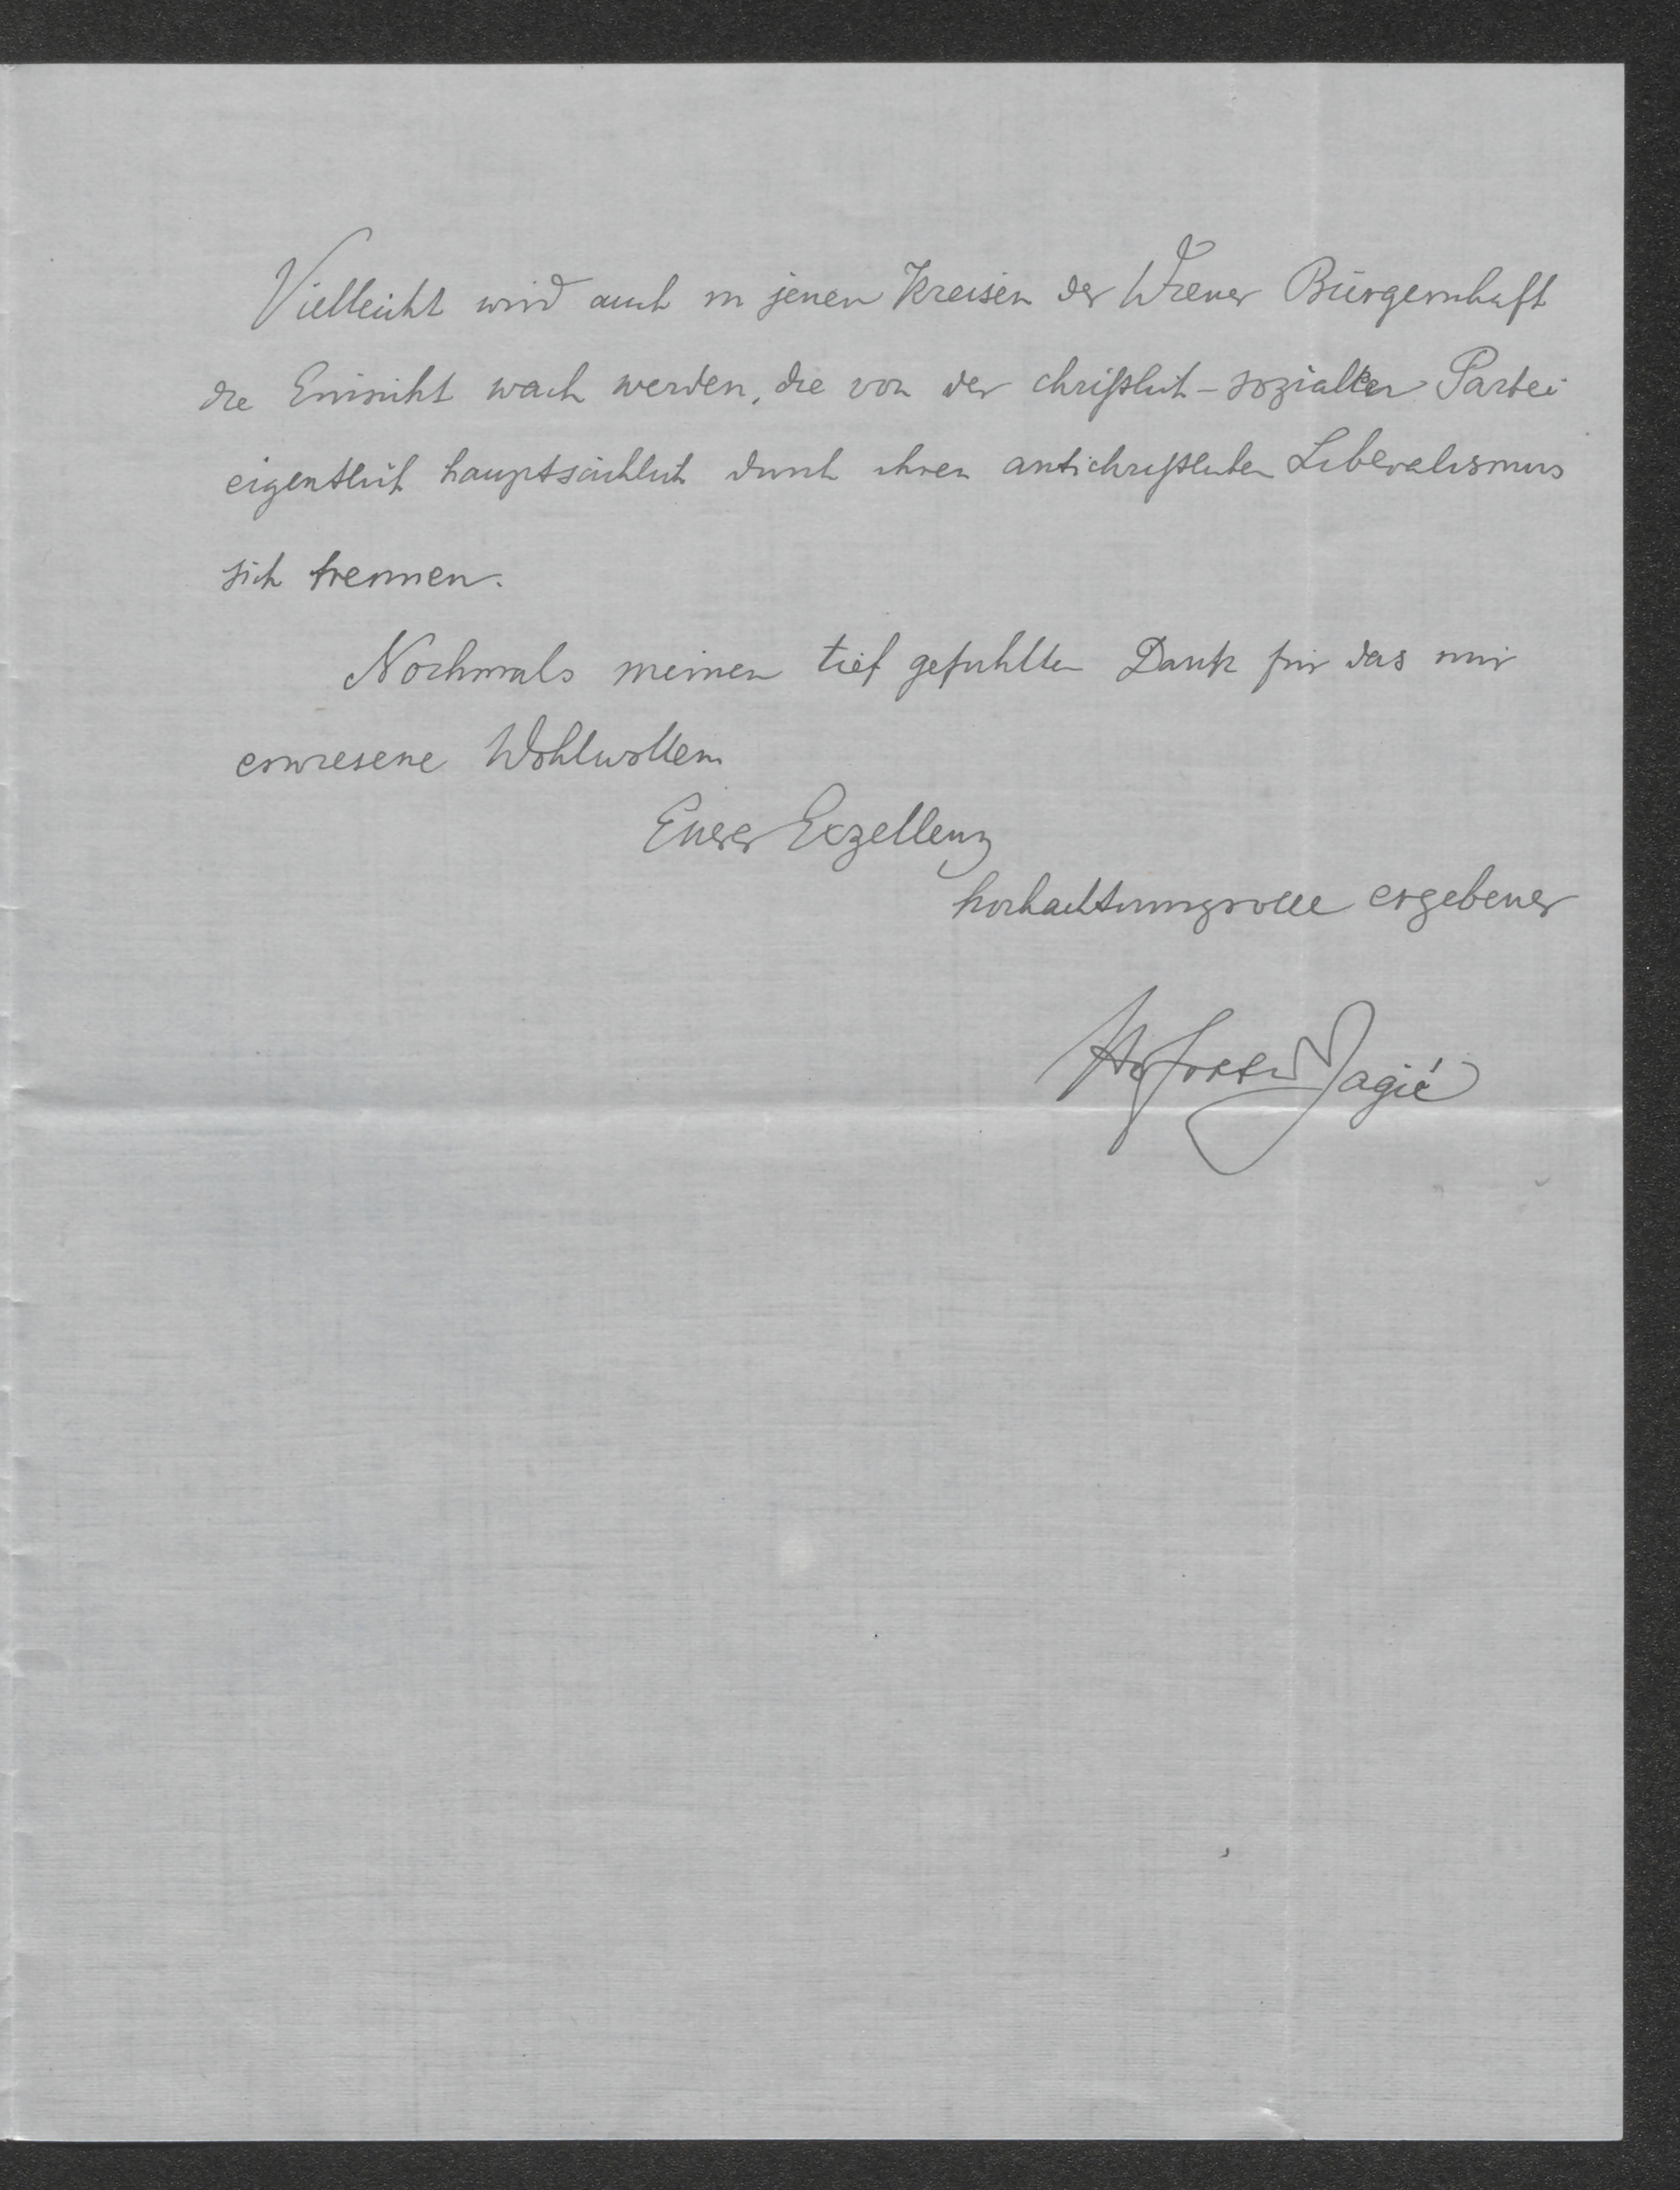 Vielleicht wird auch in jenen Kreisen der Wiener Bürgerschaft
die Einsicht wach werden, die von der christlich-sozialen Partei
eigentlich hauptsächlich durch ihren antichristlichen Liberalismus
sich trennen.
Nochmals meinen tief gefühlten Dank für das mir
erwiesene Wohlwollen
Euerer Exzellenz
hochachtungsvolle ergebener
Jagić